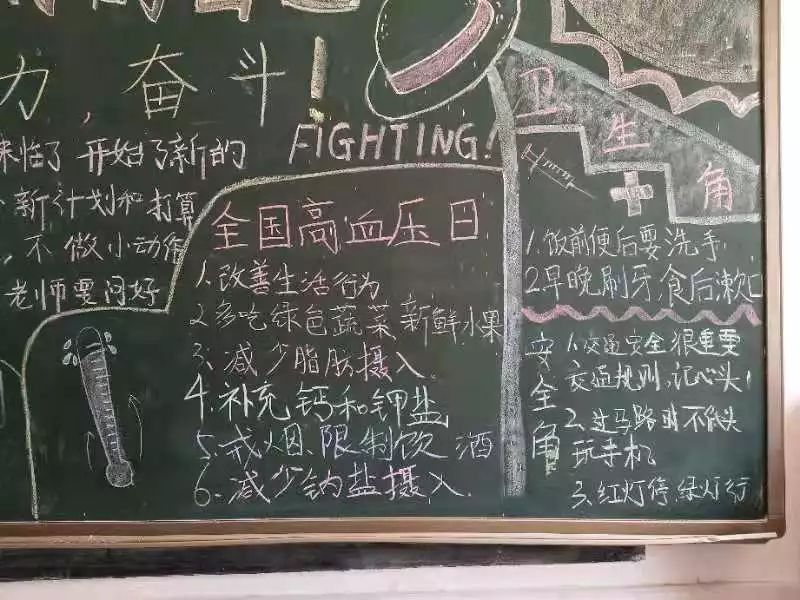 力,奋斗!
FIGHTING!
来临了 开始了新的
新计划和打算
,不做小动作
老师要问好
全国高血压日
1.改善生活行为
2.多吃绿色蔬菜 新鲜水果
3.减少脂肪摄入.
4.补充钙和钾盐
5.戒烟、限制饮酒
6.减少钠盐摄入.
卫生角
1.饭前便后要洗手
2.早晚刷牙,食后漱口
安全角
1.交通安全很重要
交通规则,记心头!
2.过马路时不低头
玩手机
3.红灯停,绿灯行